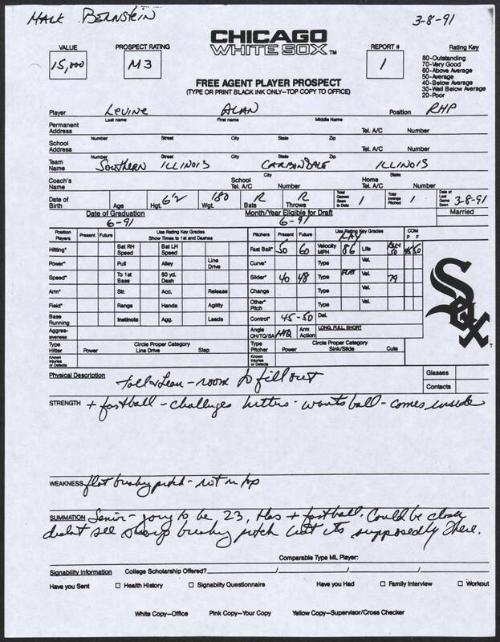 HALK BERNSTEIN 3-8-91
CHICAGO
WHITE SOX™
VALUE PROSPECT RATING REPORT # Rating Key
15,000 M3 1
80-Outstanding
70-Very Good
60-Above Average
50-Average
40-Below Average
30-Well Below Average
20-Poor
FREE AGENT PLAYER PROSPECT
(TYPE OR PRINT BLACK INK ONLY-TOP COPY TO OFFICE)
Player LEVINE ALAN Position RHP
Last name First name Middle Name
Permanent Address Tel. A/C Number
Number Street City State Zip
School Address Tel. A/C Number
Number Street City State Zip
Team Name SOUTHERN ILLINOIS CARBONDALE ILLINOIS
Coach's Name School Tel. A/C Number Home Tel. A/C Number
Date of Birth Age Hgt. 6'2 Wgt. 180 Bats R Throws R Total Games Seen to Date 1 Total Innings Pitched 1 Date of Last Game Seen 3-8-91
Date of Graduation Month/Year Eligible for Draft Married
6-91 6-91
Position Players Present Future Use Rating Key Grades Show Times to 1st and Dashes Pitchers Present Future Use Rating Key Grades
Hitting* Bat RH Speed Bat LH Speed Fast Ball* 50 60 Velocity MPH 86 Life
Power* Pull Alley Line Drive Curve* Type Vel.
Speed* To 1st Base 60 yd. Dash Slider* 40 48 Type FLAT Vel. 79
Arm* Str. Acc. Release Change Vel.
Field* Range Hands Agility Other* Pitch Type Vel.
Base Running Instincts Agg. Leads Control* 45-50 Del.
Aggressiveness Angle OH/TQ/SA Arm Action LONG, FULL, SHORT
Type Hitter Circle Proper Category Type Pitcher Circle Proper Category
Power Line Drive Slap Power Sink/Slide Cute
Known Injuries or Defects Known Injuries or Defects
Sox
Physical Description tall & lean - room to fill out Glasses
Contacts
STRENGTH + fastball - challenges hitters - wants ball - comes inside
WEAKNESS flat breaking pitch - not on top
SUMMATION Senior - going to be 23, Has + fastball. Could be closer
didn't see sharp breaking pitch but its supposedly there.
Comparable Type ML Player:
Signability Information College Scholarship Offered?
Have you Sent ☐ Health History ☐ Signability Questionnaire Have you Had ☐ Family Interview ☐ Workout
White Copy-Office Pink Copy-Your Copy Yellow Copy-Supervisor/Cross Checker